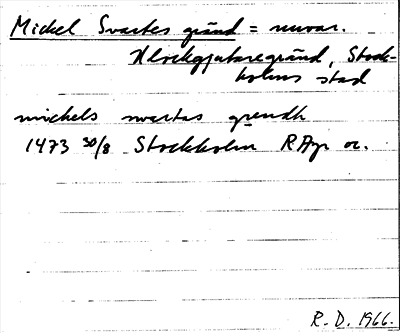 Mickel Svartes gränd = nuvar.
Klockgjutaregränd, Stock-
holms stad
mickels swartas grendh
1473 30/8 Stockholm RApr or.
R. D. 1966.